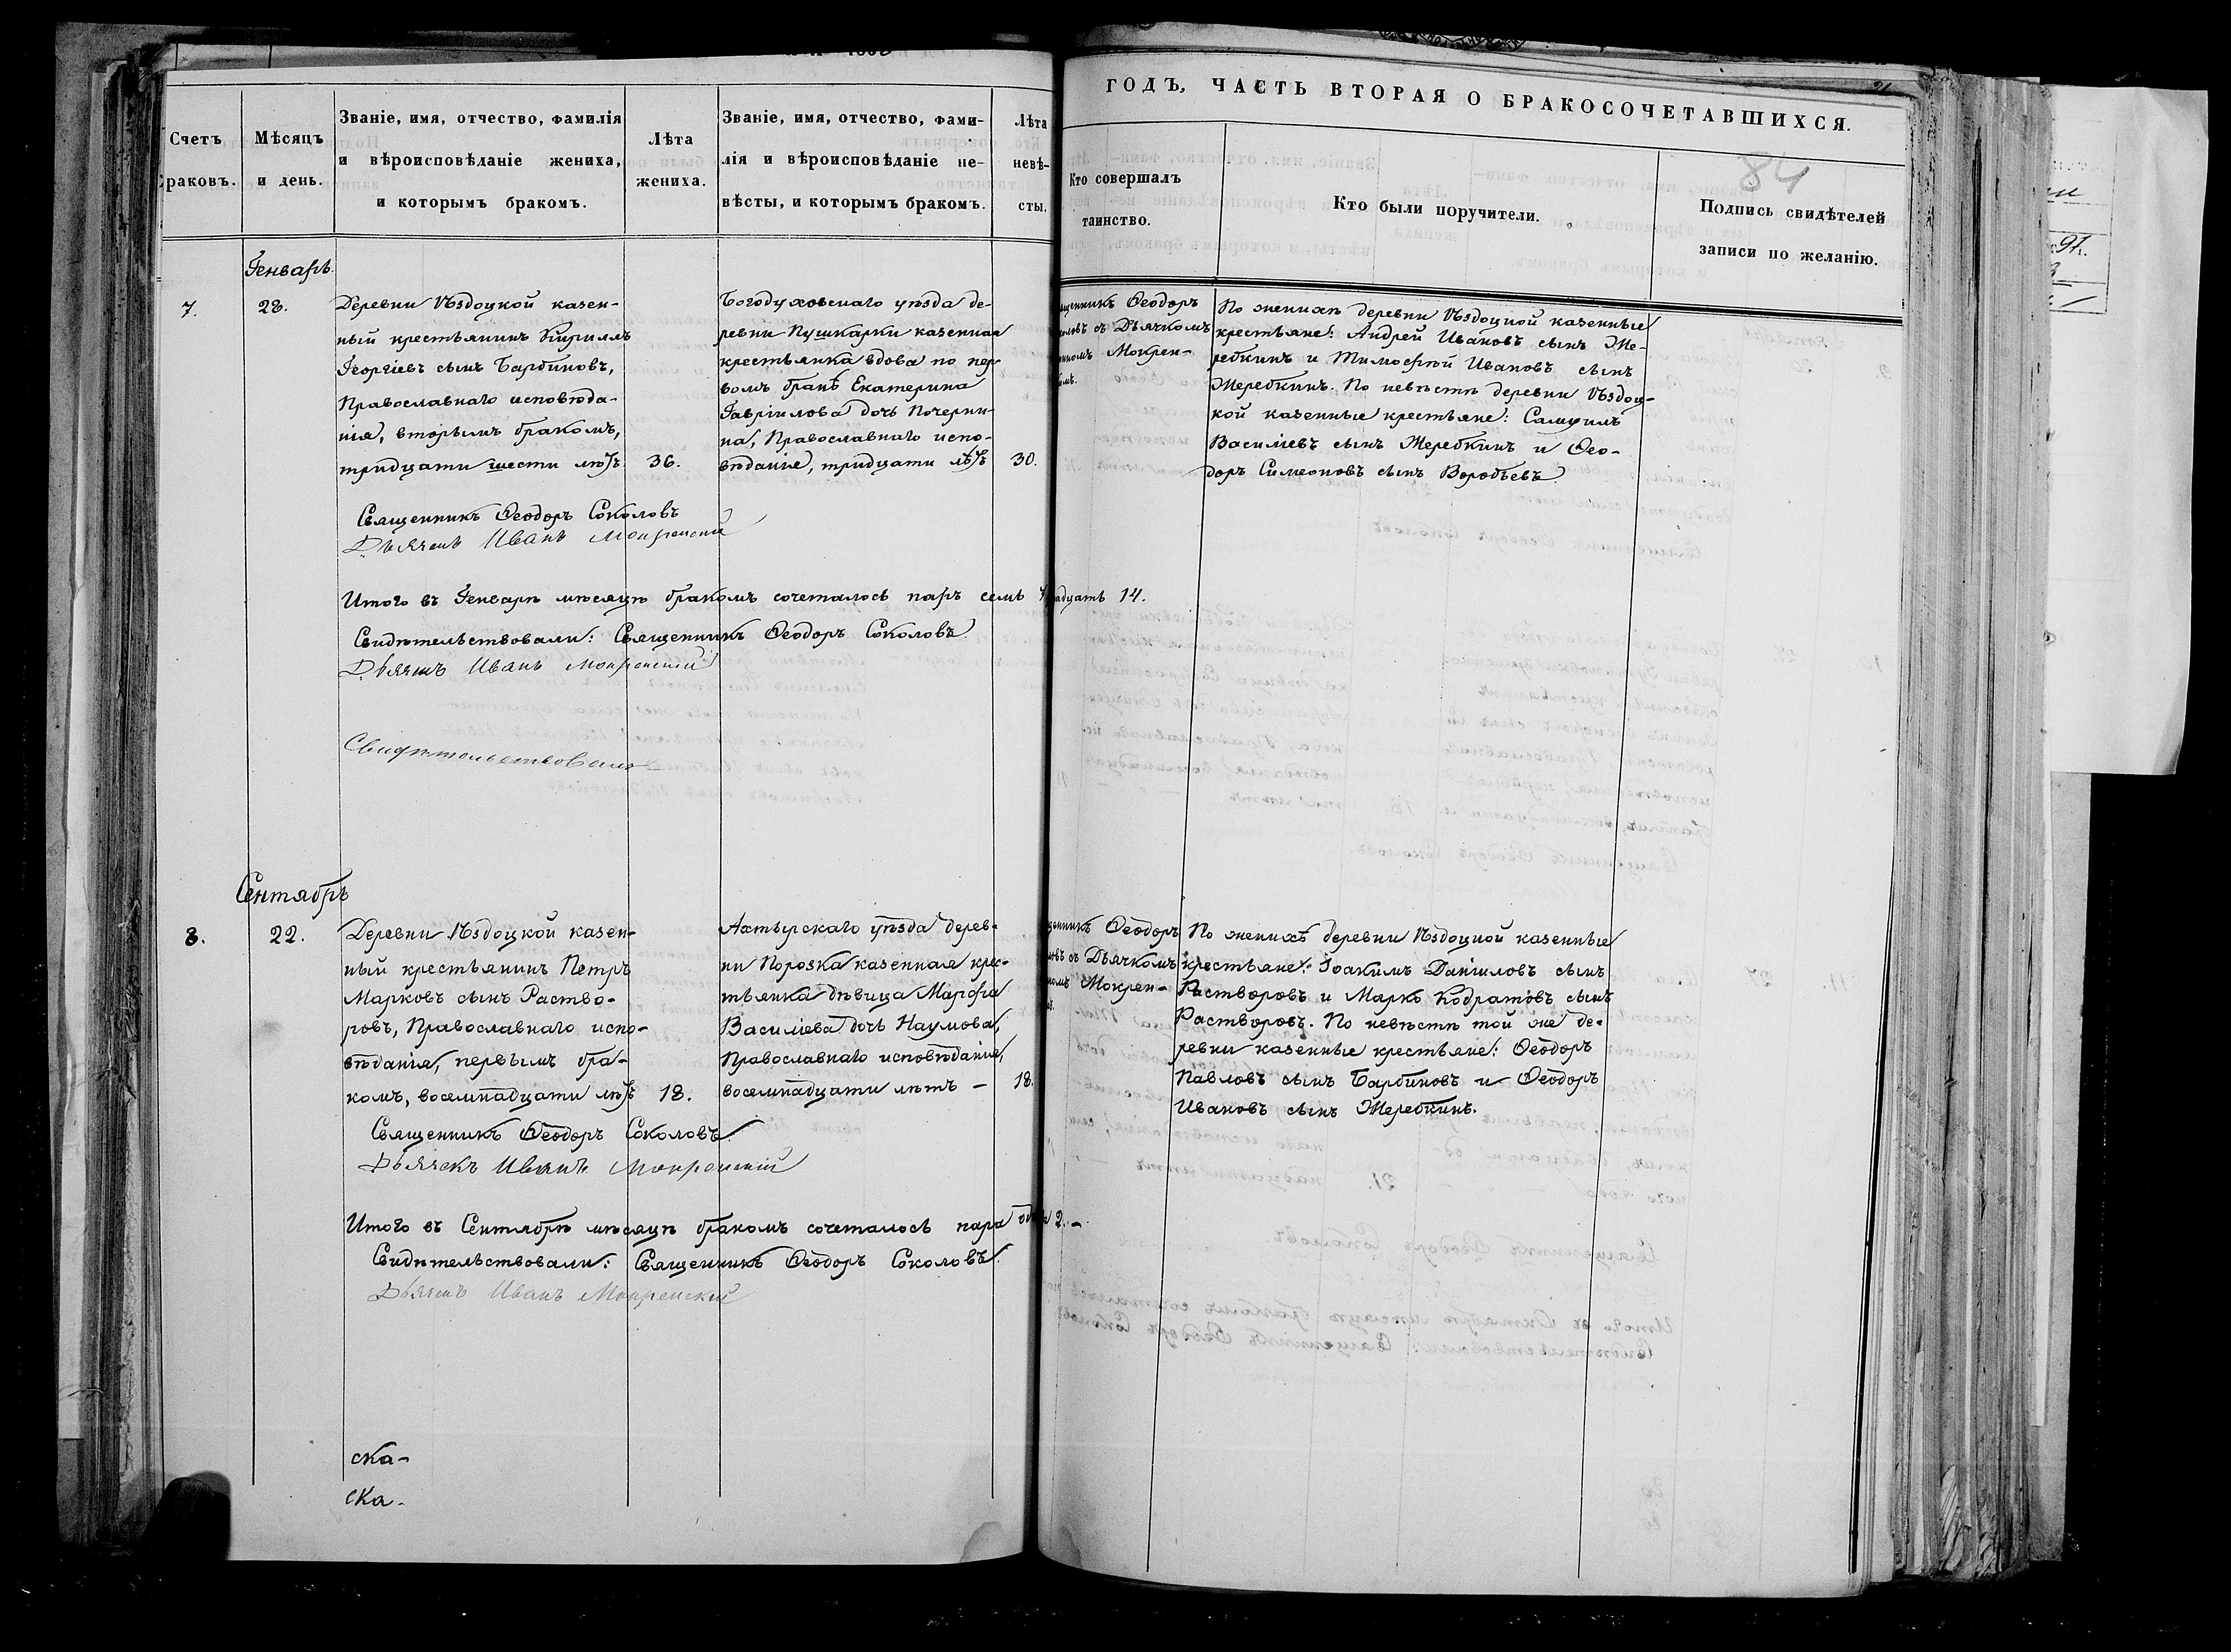 ГОДЪ, ЧАСТЬ ВТОРАЯ О БРАКОСОЧЕТАВШИХСЯ.
84
Счетъ
браковъ.
Мѣсяцъ
и день.
Званіе, имя, отчество, фамилія
и вѣроисповѣданіе жениха,
и которымъ бракомъ.
Лѣта
жениха.
Званіе, имя, отчество, фами-
лія и вѣроисповѣданіе не-
вѣсты, и которымъ бракомъ.
Лѣта
невѣ-
сты.
Кто совершалъ
таинство.
Кто были поручители.
Подпись свидѣтелей
записи по желанію.
Генварь
7.
28.
Деревни Ѣздоцкой казен-
ный крестьянинъ Кириллъ
Георгіевъ сынъ Барбиновъ,
Православнаго исповѣда-
нія, вторымъ бракомъ,
тридцати шести лѣтъ
36.
Богодуховскаго уѣзда де-
ревни Пушкарки казенная
крестьянка вдова по пер-
вомъ бракѣ Екатерина
Гавріилова дочь Почерни-
на, Православнаго испо-
вѣданія, тридцати лѣтъ
30.
щенникъ Ѳеодоръ
оловъ съ Дьячкомъ
Мокрен-
По женихѣ деревни Ѣздоцкой казенные
крестьяне: Андрей Ивановъ сынъ Же-
ребкинъ и Тимоѳей Ивановъ сынъ
Жеребкинъ. По невѣстѣ деревни Ѣздоц-
кой казенные крестьяне: Самуилъ
Василіевъ сынъ Жеребкинъ и Ѳео-
доръ Симеоновъ сынъ Воробьевъ.
Священникъ Ѳеодоръ Соколовъ
Дьячекъ Иванъ Мокренскій
Итого въ Генварѣ мѣсяцѣ бракомъ сочеталось паръ семь 14.
Свидѣтельствовали: Священникъ Ѳеодоръ Соколовъ
Дьячекъ Иванъ Мокренскій
Свидѣтельствовано
Сентябрь
8.
22.
Деревни Ѣздоцкой казен-
ный крестьянинъ Петръ
Марковъ сынъ Раство-
ровъ, Православнаго испо-
вѣданія, первымъ бра-
комъ, восемнадцати лѣтъ
18.
Ахтырскаго уѣзда дерев-
ни Порозка казенная крес-
тьянка дѣвица Марѳа
Василіева дочь Наумова,
Православнаго исповѣданія,
восемнадцати лѣтъ —
18.
щенникъ Ѳеодоръ
овъ съ Дьячкомъ
Мокрен-
По женихѣ деревни Ѣздоцкой казенные
крестьяне: Іоакимъ Даніиловъ сынъ
Растворовъ и Марко Кодратовъ сынъ
Растворовъ. По невѣстѣ той же де-
ревни казенные крестьяне: Ѳеодоръ
Павловъ сынъ Барбиновъ и Ѳеодоръ
Ивановъ сынъ Жеребкинъ.
Священникъ Ѳеодоръ Соколовъ
Дьячекъ Иванъ Мокренскій
Итого въ Сентябрѣ мѣсяцѣ бракомъ сочеталось пара 2. —
Свидѣтельствовали: Священникъ Ѳеодоръ Соколовъ
Дьячекъ Иванъ Мокренскій
ска-
ска-